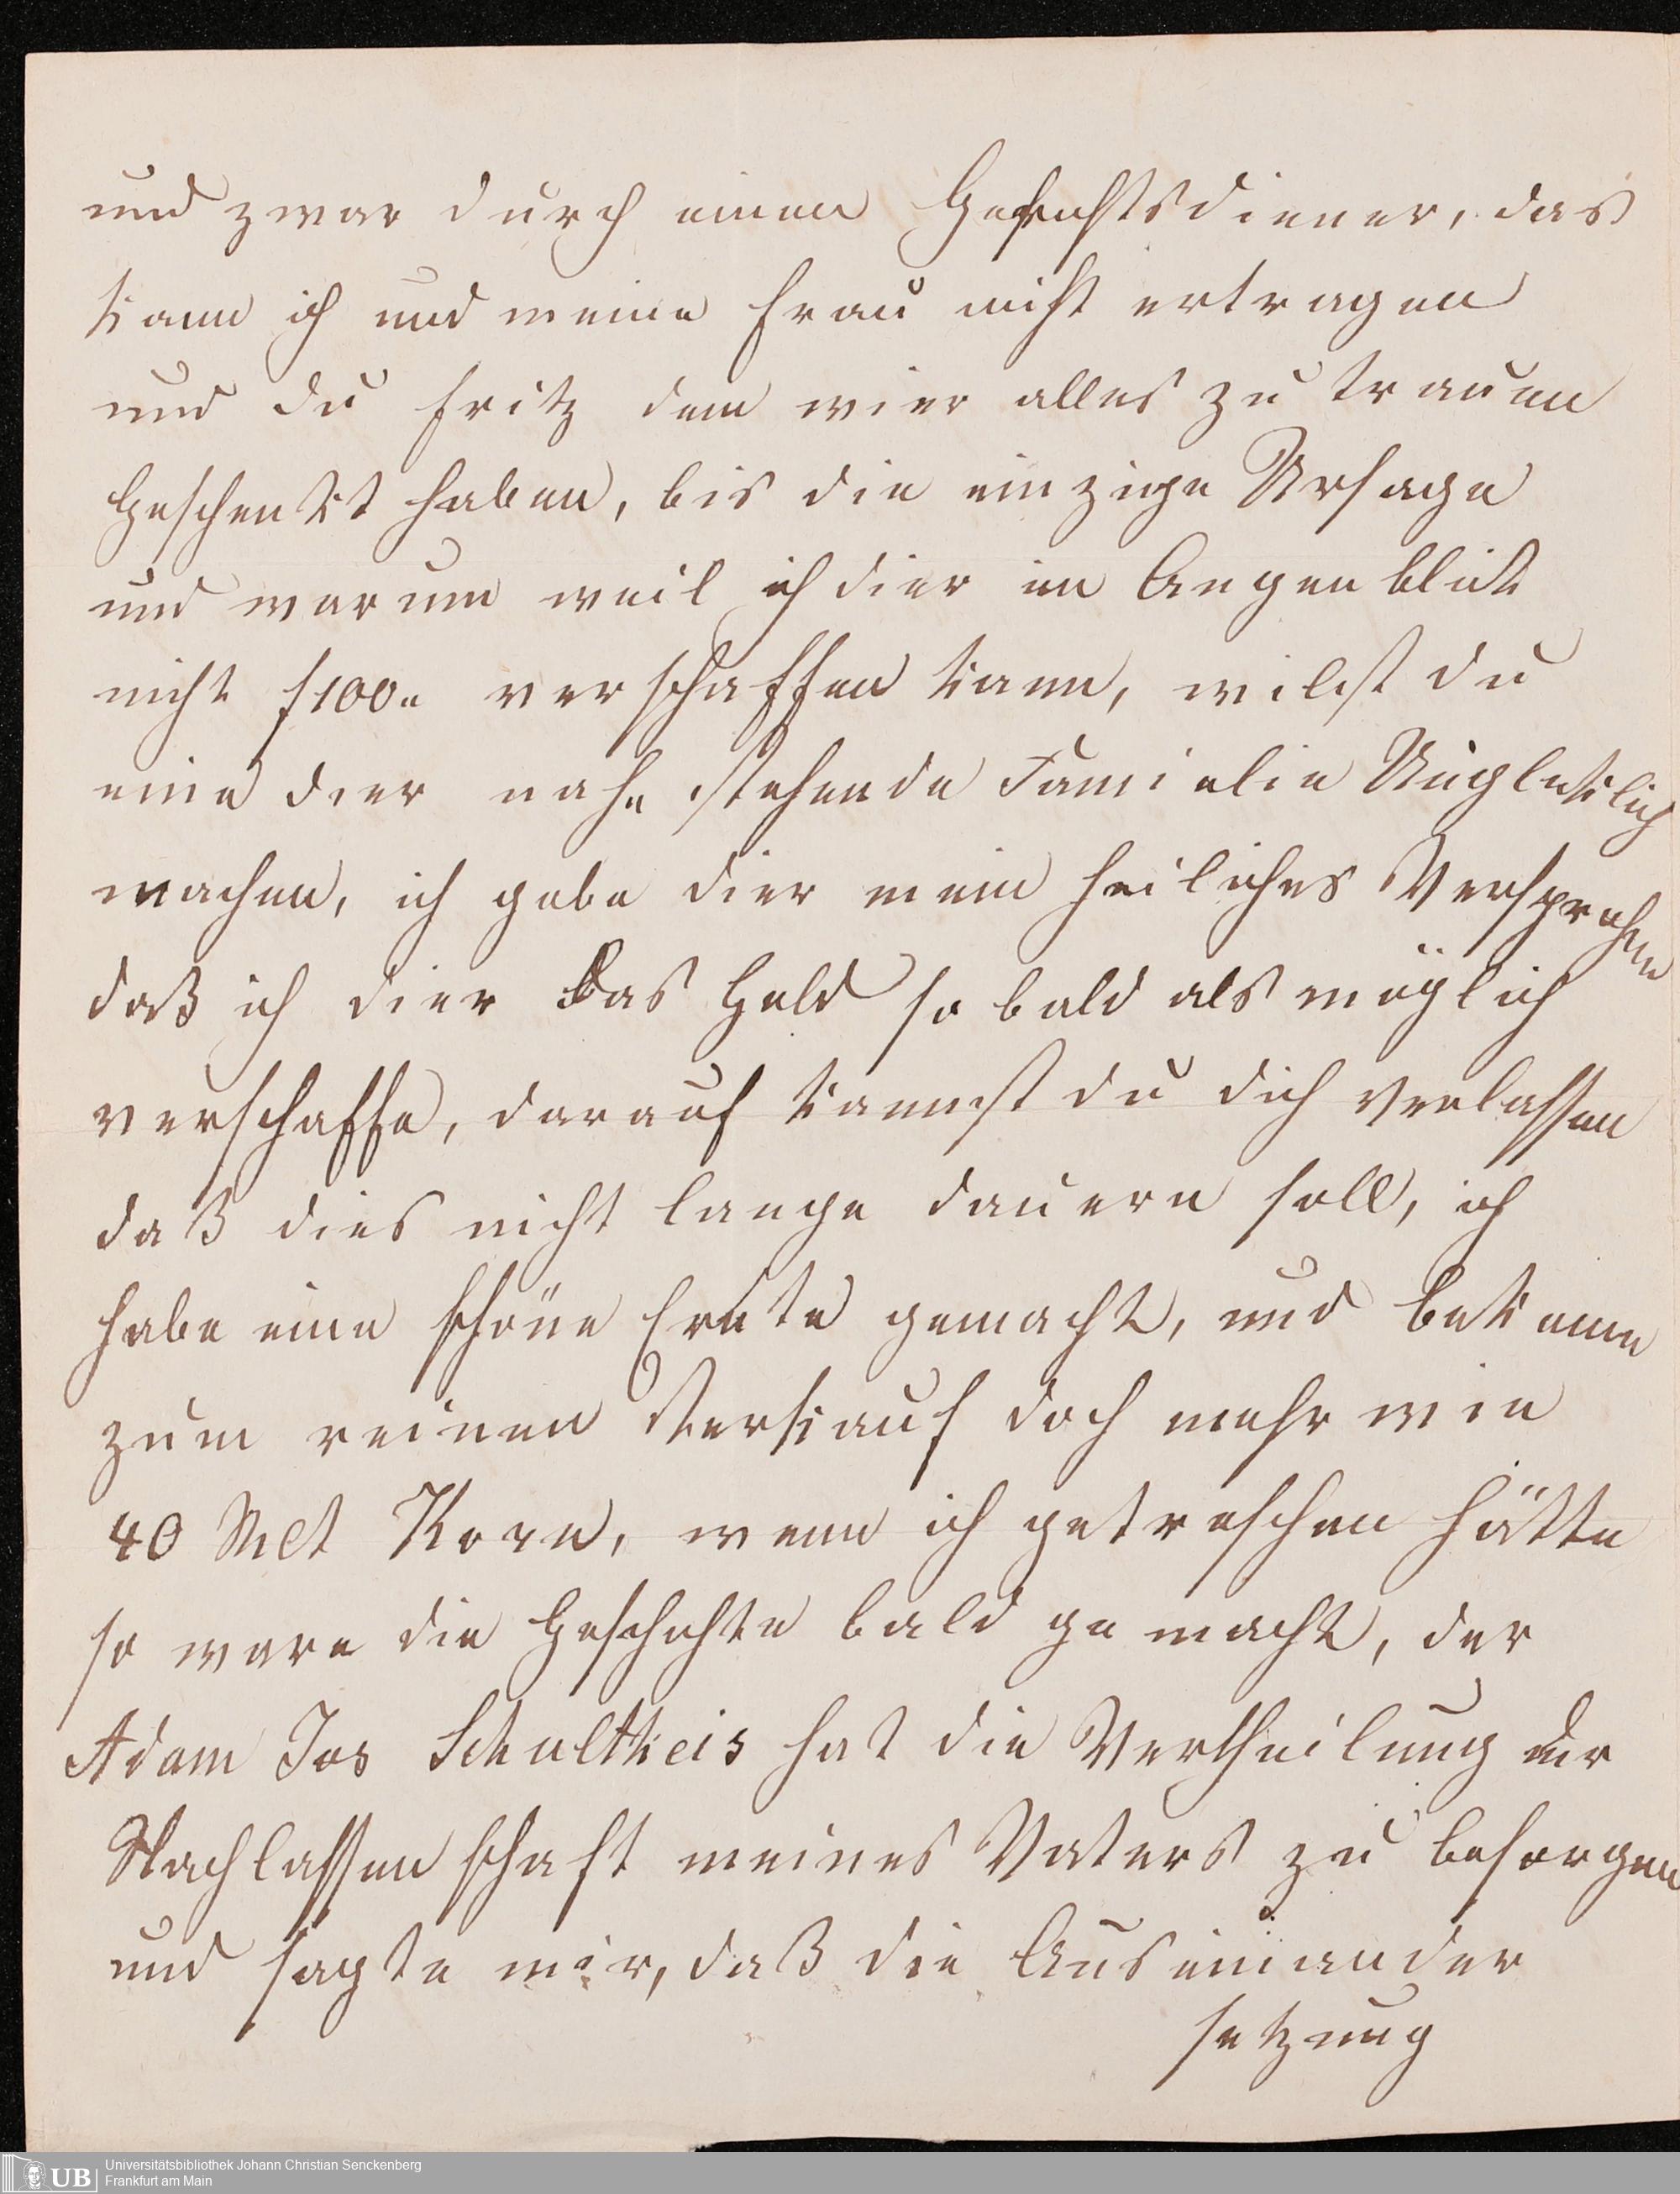 und zwar durch einen Gerichtsdiener, das
kann ich und meine Frau nicht ertragen
und du Fritz dem wier alles zu trauen
Geschenkt haben, bis die einzige Ursage
und warum weil ich dier im Augenblick
nicht f 100„ verschaffen kann, wilst du
eine dier nahe stehende Famielie Unglüklich
machen, ich gebe dier mein heiliches Versprechen
daß ich dier das Geld so bald als möglich
verschaffe, darauf kannst du dich verlassen
daß dies nicht lange dauern soll, ich
habe eine schöne Ernte gemacht, und bekomm
zum reinen Verkauf doch mehr wie
40 Mlt Korn, wenn ich getreschen hätte
so ware die Geschichte bald gemacht, der
Adam Jos Schultheis hat die Vertheilung der
Nachlassenschaft meines Vaters zu besorgen
und sagte mir, daß die Auseinander
setzung
Universitätsbibliothek Johann Christian Senckenberg
UB Frankfurt am Main